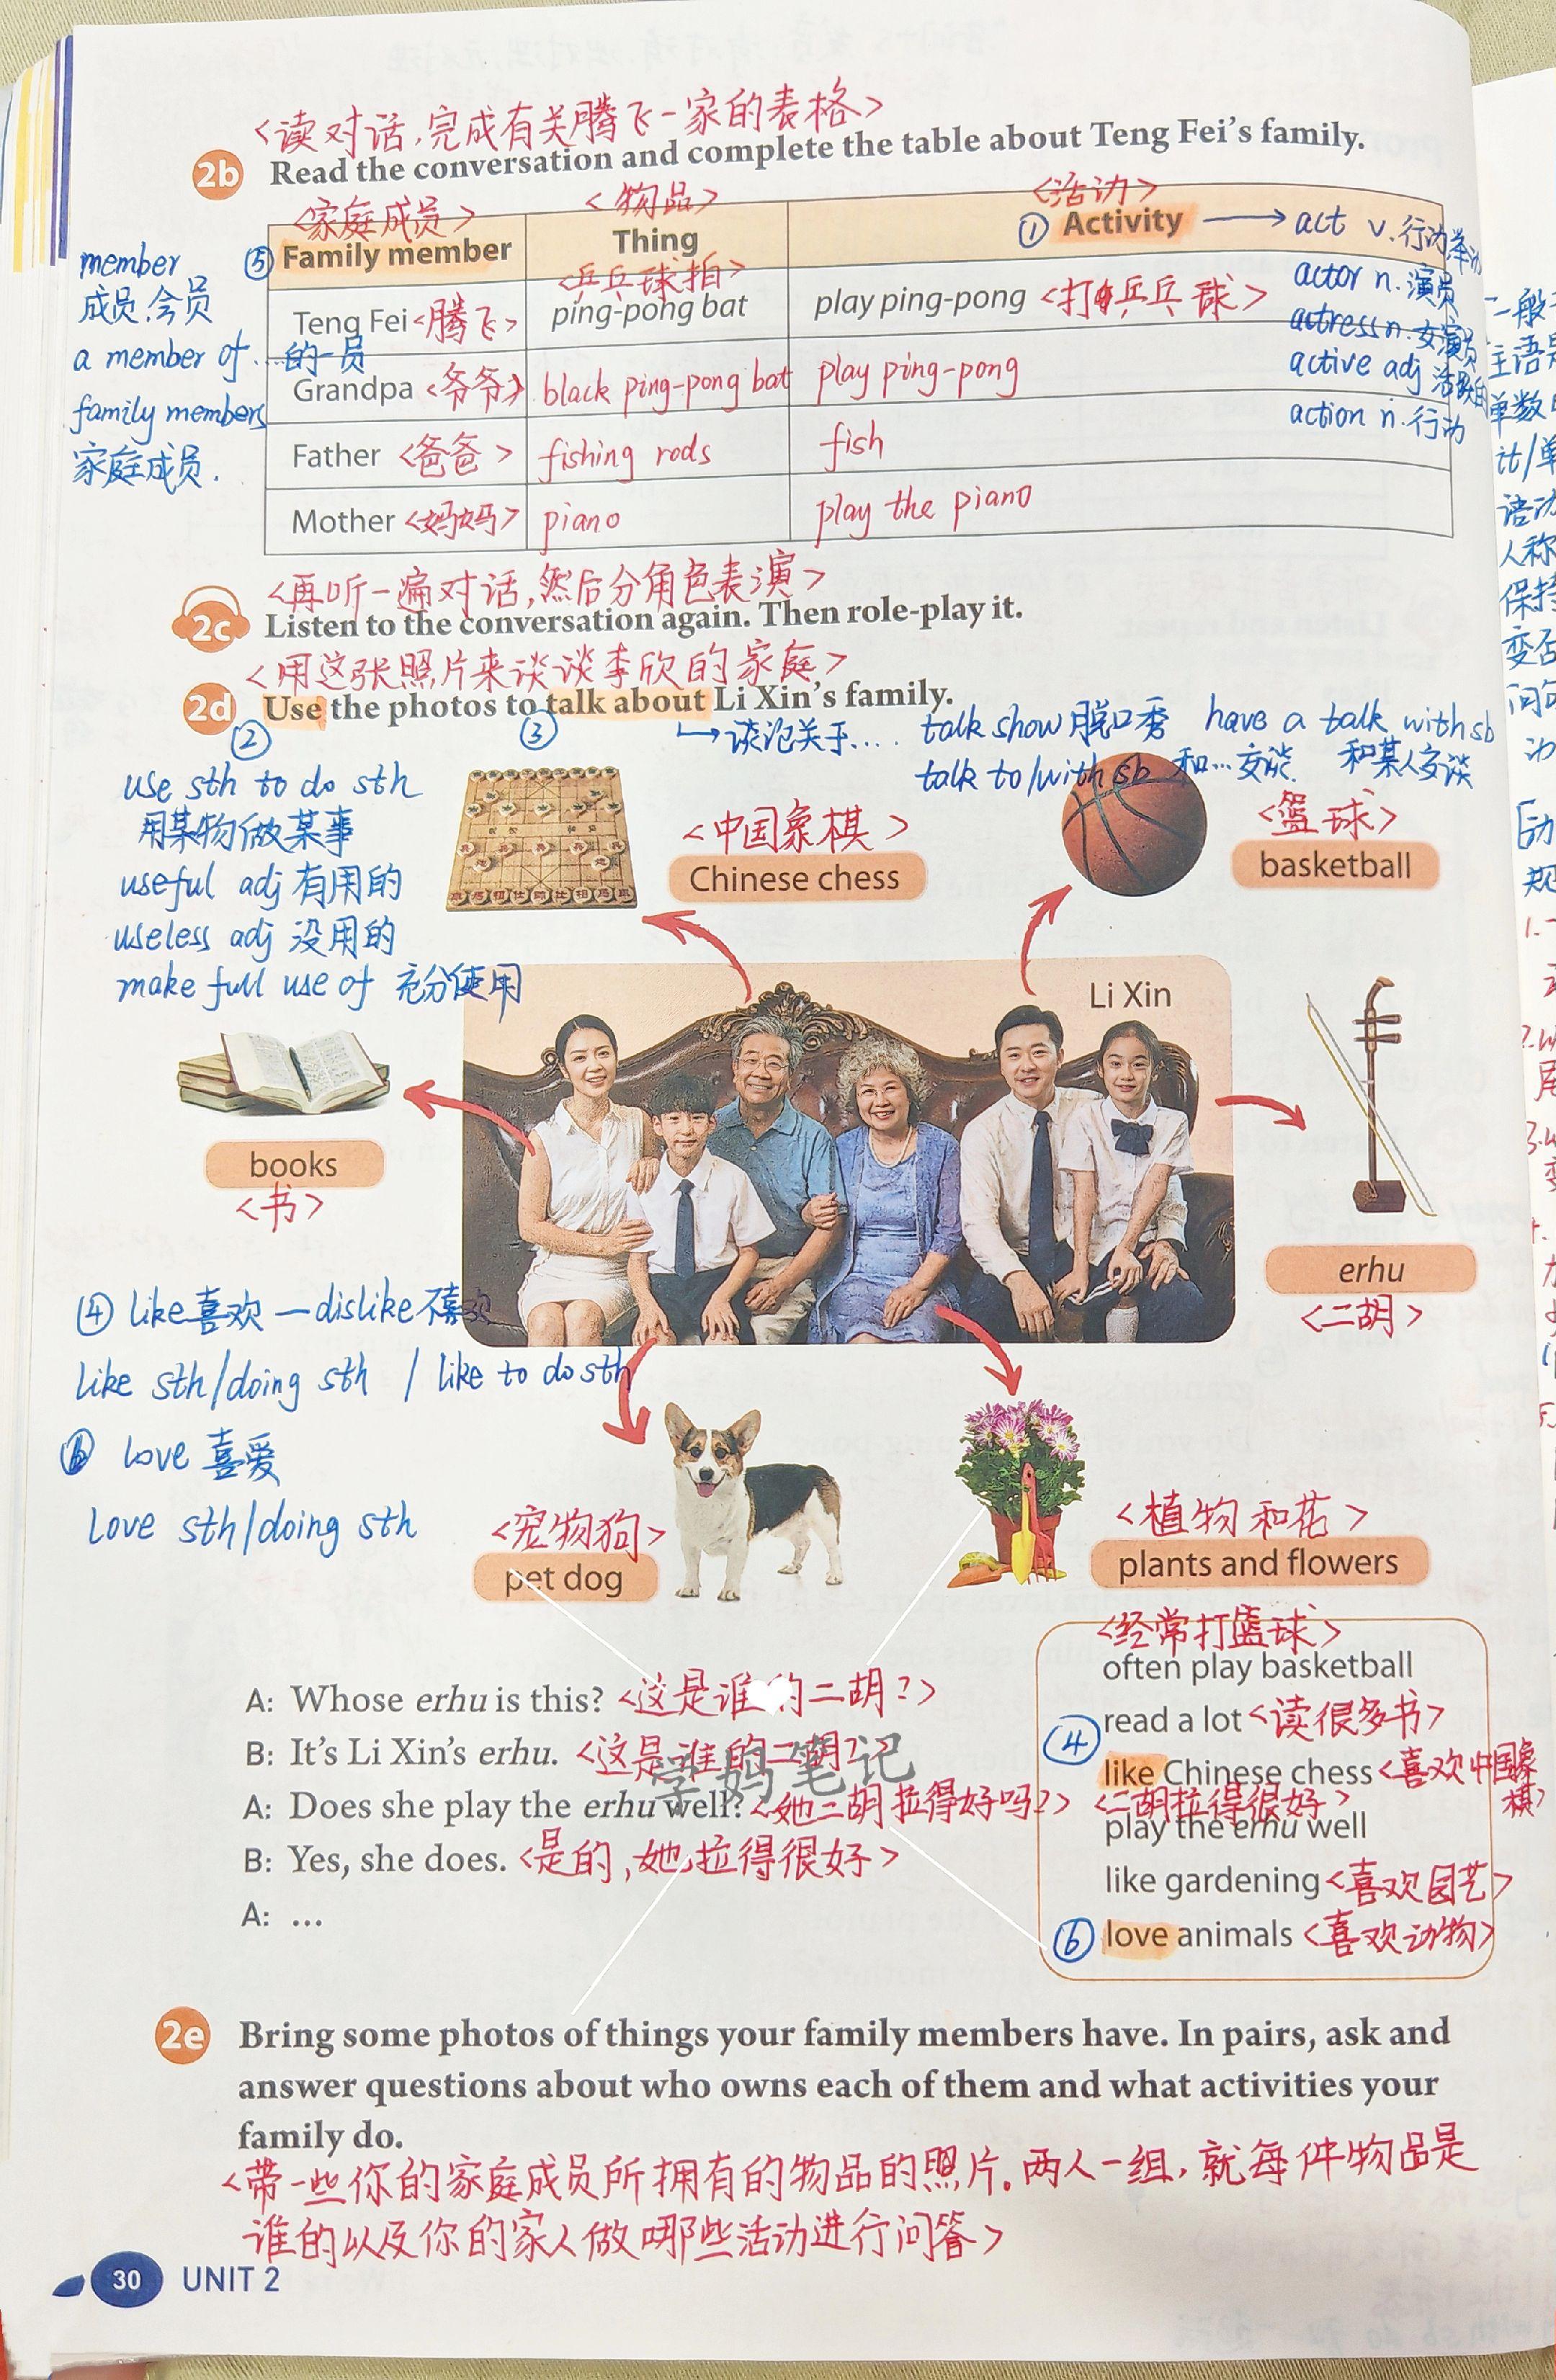 <读对话,完成有关腾飞一家的表格>
2b Read the conversation and complete the table about Teng Fei's family.
<家庭成员> <物品> <活动>
⑤ Family member Thing ① Activity → act v.行动
<乒乓球拍>
Teng Fei <腾飞> ping-pong bat play ping-pong <打乒乓球>
Grandpa <爷爷> black ping-pong bat play ping-pong
Father <爸爸> fishing rods fish
Mother <妈妈> piano play the piano
actor n.演员
actress n.女演员
active adj 活跃的
action n.行动
member
成员.会员
a member of ...的一员
family members
家庭成员.
<再听一遍对话,然后分角色表演>
2c Listen to the conversation again. Then role-play it.
<用这张照片来谈谈李欣的家庭>
2d Use the photos to talk about Li Xin's family.
② ③
→谈论关于.... talk show 脱口秀 have a talk with sb
talk to/with sb 和...交谈. 和某人交谈
use sth to do sth
用某物做某事
useful adj 有用的
useless adj 没用的
make full use of 充分使用
<中国象棋>
Chinese chess
<篮球>
basketball
Li Xin
books
<书>
erhu
<二胡>
④ like喜欢—dislike不喜欢
like sth/doing sth / like to do sth
⑥ love 喜爱
Love sth/doing sth
<宠物狗>
pet dog
<植物和花>
plants and flowers
A: Whose erhu is this? <这是谁的二胡?>
B: It's Li Xin's erhu. <这是谁的二胡?>
A: Does she play the erhu well? <她二胡拉得好吗?>
B: Yes, she does. <是的,她拉得很好>
A: ...
学妈笔记
<经常打篮球>
often play basketball
read a lot <读很多书>
④ like Chinese chess <喜欢中国象棋>
<二胡拉得很好>
play the erhu well
like gardening <喜欢园艺>
⑥ love animals <喜欢动物>
2e Bring some photos of things your family members have. In pairs, ask and
answer questions about who owns each of them and what activities your
family do.
<带一些你的家庭成员所拥有的物品的照片.两人一组,就每件物品是
谁的以及你的家人做哪些活动进行问答>
30 UNIT 2